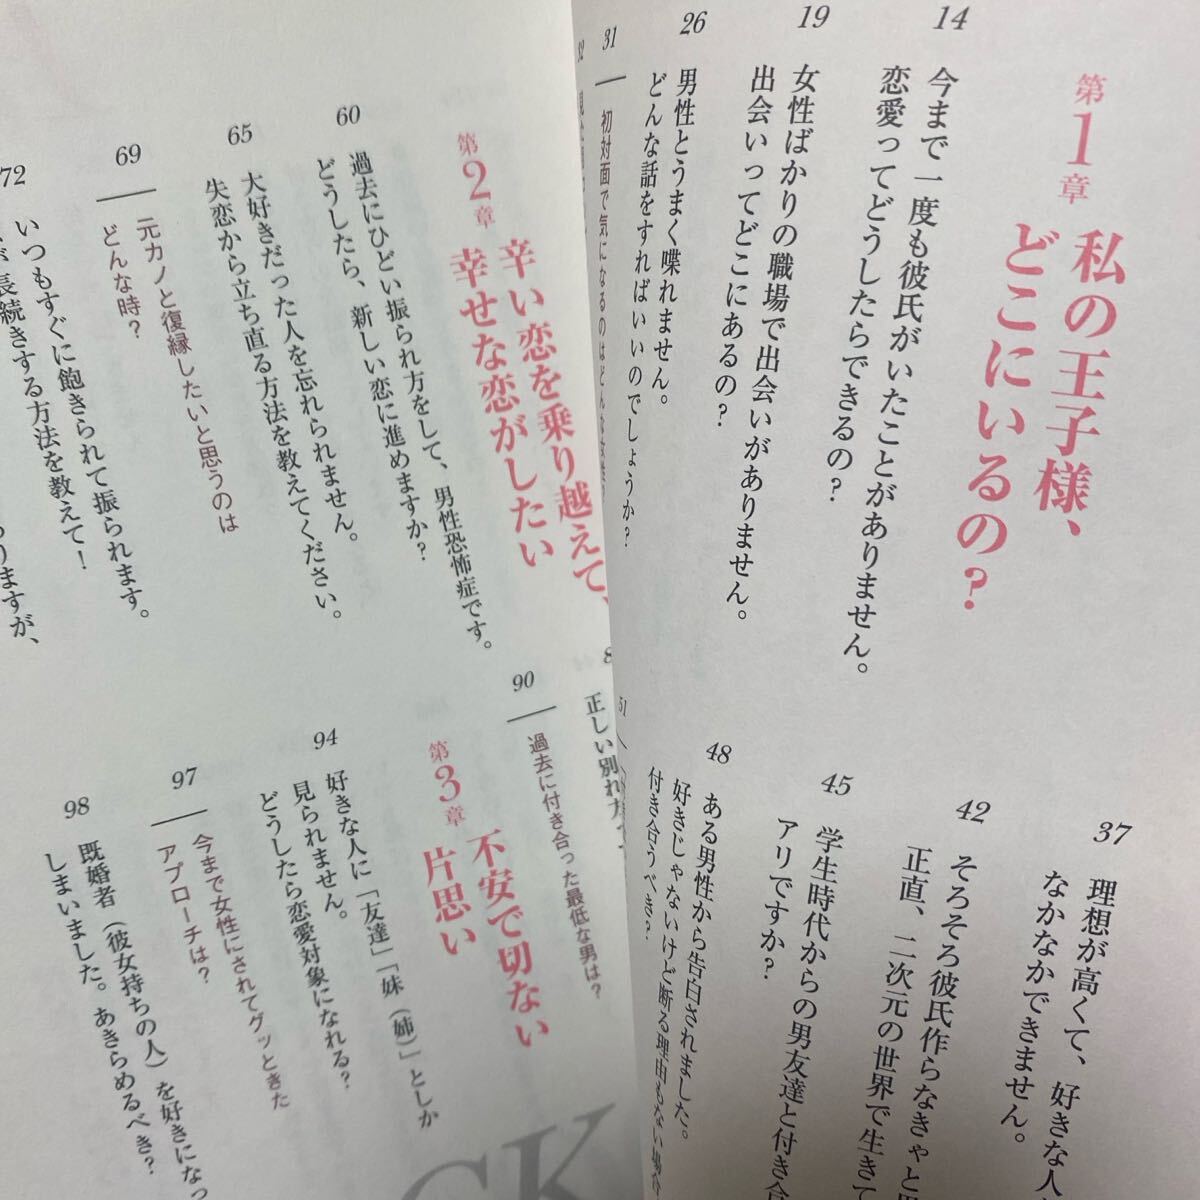 第1章 私の王子様、
どこにいるの?
14
今まで一度も彼氏がいたことがありません。
恋愛ってどうしたらできるの?
19
女性ばかりの職場で出会いがありません。
出会いってどこにあるの?
26
男性とうまく喋れません。
どんな話をすればいいのでしょうか?
31
初対面で気になるのはどんな女性?
32
37
理想が高くて、好きな人
なかなかできません。
42
そろそろ彼氏作らなきゃと
正直、二次元の世界で生きて
45
学生時代からの男友達と付き合
アリですか?
48
ある男性から告白されました。
好きじゃないけど断る理由もない場合
付き合うべき?
51
第2章 辛い恋を乗り越えて、
幸せな恋がしたい
60
過去にひどい振られ方をして、男性恐怖症です。
どうしたら、新しい恋に進めますか?
65
大好きだった人を忘れられません。
失恋から立ち直る方法を教えてください。
69
元カノと復縁したいと思うのは
どんな時?
72
いつもすぐに飽きられて振られます。
が長続きする方法を教えて!
りますが、
正しい別れ方って
90
過去に付き合った最低な男は?
第3章 不安で切ない
片思い
94
好きな人に「友達」「妹(姉)」としか
見られません。
どうしたら恋愛対象になれる?
97
今まで女性にされてグッときた
アプローチは?
98
既婚者(彼女持ちの人)を好きになっ
しまいました。あきらめるべき?
CK